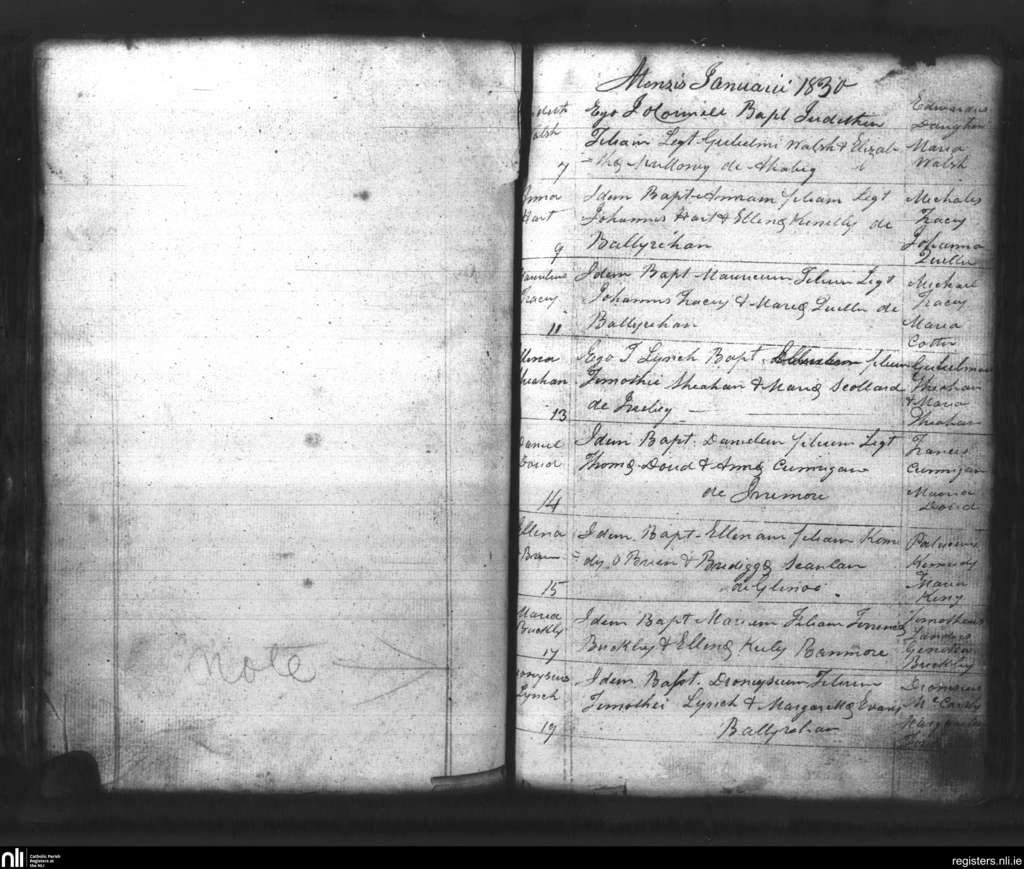 note
Mensis Januarii 1830
Walsh
7
Ego J OConnell Bapt Judethm
Filiam Legt Gulielmi Walsh & Elizab
=thæ Mulloney de Ahabeg
Edwardus
Daughton
Maria
Walsh
Anna
Hart
9
Idem Bapt Annam filiam Legt
Johannis Hart & Ellenæ Kenelly de
Ballyrehan
Michales
Tracey
Johanna
Quilter
Tracey
11
Idem Bapt Mauricum Filium Legt
Johannis Tracey & Mariæ Quilter de
Ballyrehan
Michael
Tracey
Maria
Cotter
Sheahan
13
Ego T Lynch Bapt. filium
Timothei Sheahan & Mariæ Scollard
de
Gulielmus
Sheahan
& Maria
Sheahan
Daniel
Doud
14
Idem Bapt. Danielem filium Legt
Thomæ Doud & Annæ Cunnigan
de Irremore
Francis
Cunnigan
Maria
Doud
Ellena
Brien
15
Idem Bapt. Ellenam filiam Kenne
=dy O Brien & Brediggæ Scanlan
de
Kennedy
Maria
King
Maria
Buckly
17
Idem Bapt Mariam Filiam
Buckley & Ellenæ Kiely Banmore
Timotheus
Landers
Buckley
Dionysius
Lynch
19
Idem Bapt. Dionysium Filium
Timothei Lynch & Margarettæ Evans
Ballyrehan
McCarthy
nli
Catholic Parish
Registers at
the NLI
registers.nli.ie